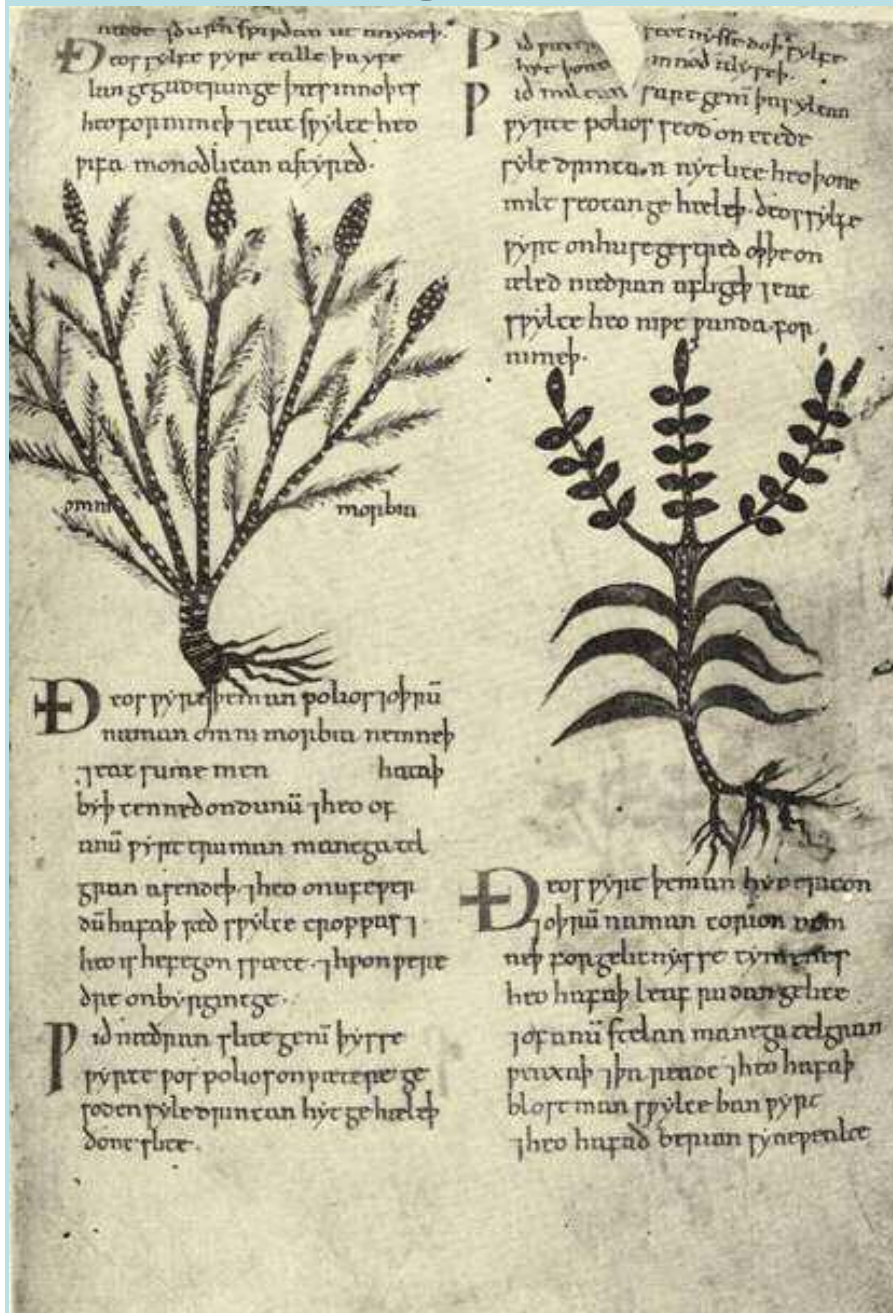 Ðeos sylfe wyrt ealle þa yfe
lan gegaderunge þæs innoþes
heo fornimeþ ⁊ eac swylce heo
wifa monoðlican astyreð.
omni morbia
Ðeos wyrt þe man polios ⁊ oþrū
naman omni morbia nemneþ
⁊ eac sume men hataþ
byþ cenned on dunū ⁊ heo of
anū wyrttruman manega tel
gran asendeþ. ⁊ heo on ufewer
dū hafaþ sæd swylce croppas ⁊
heo is hefegon swæce. ⁊ hwon were
dre on byrgincge.
Wið nædran slite genī þysse
wyrte wos polios on wætere ge
soden syle drincan hyt gehæleþ
done slite.
Wið
innoð
Wið miltan sare genī þas sylfan
wyrte polios seoð on ecede
syle drincan nytlice heo þone
milt seocan gehæleþ. Ðeos sylfe
wyrt on huse gestred oþþe on
æled nædran afligeþ ⁊ eac
swylce heo niwe wunda for
nimeþ.
Ðeos wyrt þe man
⁊ oþrū naman corion nem
neþ for gelicnysse
heo hafaþ leaf rudan gelice
⁊ of anū stelan manega telgran
weaxaþ ⁊ þa reade ⁊ heo hafaþ
blostman swylce banwyrt
⁊ heo hafað berian synewealte